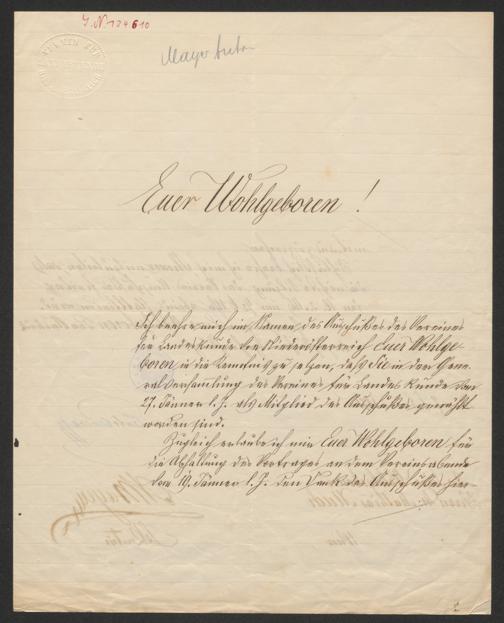 J.N. 124610
Mayer Anton
Euer Wohlgeboren!
Ich beehre mich im Namen des Ausschußes des Vereines
für Landeskunde von Niederösterreich Euer Wohlge-
boren in die Kenntniß zu setzen, daß Sie in der Gene-
ralversammlung des Vereines für Landeskunde vom
27. Jänner l. J. als Mitglied des Ausschußes gewählt
worden sind.
Zugleich erlaube ich mir Euer Wohlgeboren für
die Abhaltung des Vortrages an dem Vereinsabende
vom 19. Jänner l. J. den Dank des Ausschußes hier-